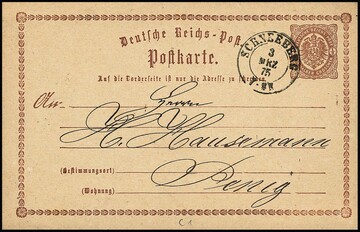 Deutsche Reichs-Post
Postkarte.
Auf die Vorderseite ist nur die Adresse zu schreiben.
SCHNEEBERG
3
MRZ
75
An
Herrn
H. Hausemann
(Bestimmungsort)
Penig
(Wohnung)